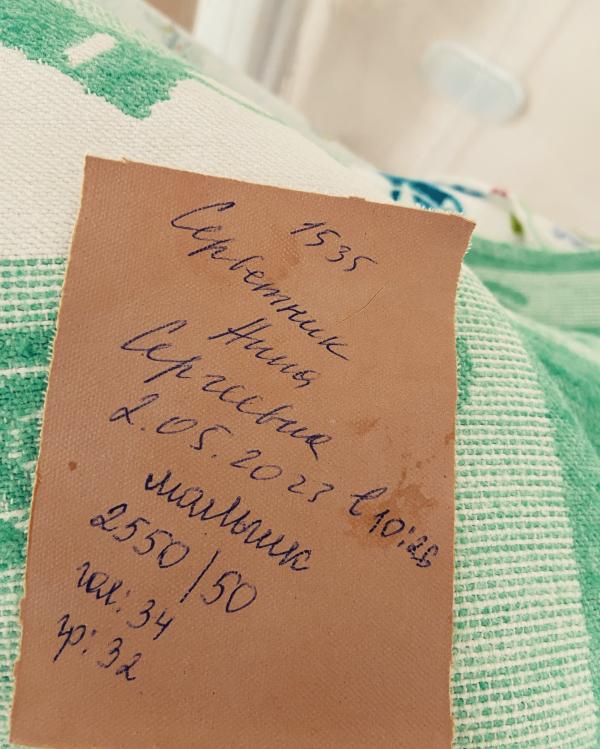 1535
Серветник
Нина
Сергеевна
2.05.2023 в 10:26
мальчик
2550/50
гол: 34
гр: 32